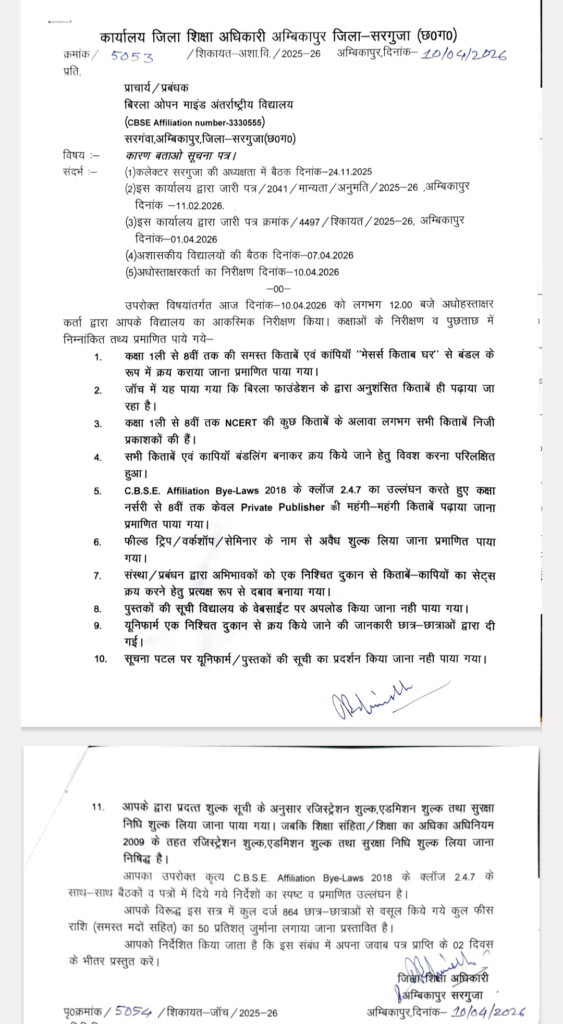 कार्यालय जिला शिक्षा अधिकारी अम्बिकापुर जिला–सरगुजा (छ0ग0)
क्रमांक / 5053 /शिकायत–अशा.वि./2025–26 अम्बिकापुर,दिनांक– 10/04/2026
प्रति,
प्राचार्य/प्रबंधक
बिरला ओपन माइंड अंतर्राष्ट्रीय विद्यालय
(CBSE Affiliation number-3330555)
सरगंवा,अम्बिकापुर,जिला–सरगुजा(छ0ग0)
विषय :– कारण बताओ सूचना पत्र।
संदर्भ :– (1)कलेक्टर सरगुजा की अध्यक्षता में बैठक दिनांक–24.11.2025
(2)इस कार्यालय द्वारा जारी पत्र/2041/मान्यता/अनुमति/2025–26 ,अम्बिकापुर
दिनांक –11.02.2026.
(3)इस कार्यालय द्वारा जारी पत्र क्रमांक/4497/श्किायत/2025–26, अम्बिकापुर
दिनांक–01.04.2026
(4)अशासकीय विद्यालयों की बैठक दिनांक–07.04.2026
(5)अधोस्ताक्षरकर्ता का निरीक्षण दिनांक–10.04.2026
—00—
उपरोक्त विषयांतर्गत आज दिनांक–10.04.2026 को लगभग 12.00 बजे अधोहस्ताक्षर
कर्ता द्वारा आपके विद्यालय का आकस्मिक निरीक्षण किया। कक्षाओं के निरीक्षण व पुछताछ में
निम्नांकित तथ्य प्रमाणित पाये गये–
1. कक्षा 1ली से 8वीं तक की समस्त किताबें एवं कांपियॉ "मेसर्स किताब घर" से बंडल के
रूप में क्रय कराया जाना प्रमाणित पाया गया।
2. जॉच में यह पाया गया कि बिरला फाउंडेशन के द्वारा अनुशंसित किताबें ही पढ़ाया जा
रहा है।
3. कक्षा 1ली से 8वीं तक NCERT की कुछ किताबें के अलावा लगभग सभी किताबें निजी
प्रकाशकों की हैं।
4. सभी किताबें एवं कापियॉ बंडलिंग बनाकर क्रय किये जाने हेतु विवश करना परिलक्षित
हुआ।
5. C.B.S.E. Affiliation Bye-Laws 2018 के क्लॉज 2.4.7 का उल्लंघन करते हुए कक्षा
नर्सरी से 8वीं तक केवल Private Publisher की महंगी–महंगी किताबें पढ़ाया जाना
प्रमाणित पाया गया।
6. फील्ड ट्रिप/वर्कशॉप/सेमिनार के नाम से अवैध शुल्क लिया जाना प्रमाणित पाया
गया।
7. संस्था/प्रबंधन द्वारा अभिभावकों को एक निश्चित दुकान से किताबें–कापियों का सेट्स
क्रय करने हेतु प्रत्यक्ष रूप से दबाव बनाया गया।
8. पुस्तकों की सूची विद्यालय के वेबसाईट पर अपलोड किया जाना नही पाया गया।
9. यूनिफार्म एक निश्चित दुकान से क्रय किये जाने की जानकारी छात्र–छात्राओं द्वारा दी
गई।
10. सूचना पटल पर यूनिफार्म/पुस्तकों की सूची का प्रदर्शन किया जाना नही पाया गया।
11. आपके द्वारा प्रदत्त शुल्क सूची के अनुसार रजिस्ट्रेशन शुल्क,एडमिशन शुल्क तथा सुरक्षा
निधि शुल्क लिया जाना पाया गया। जबकि शिक्षा संहिता/शिक्षा का अधिका अधिनियम
2009 के तहत रजिस्ट्रेशन शुल्क,एडमिशन शुल्क तथा सुरक्षा निधि शुल्क लिया जाना
निषिद्व है।
आपका उपरोक्त कृत्य C.B.S.E. Affiliation Bye-Laws 2018 के क्लॉज 2.4.7 के
साथ–साथ बैठकों व पत्रों में दिये गये निर्देशों का स्पष्ट व प्रमाणित उल्लंघन है।
आपके विरूद्व इस सत्र में कुल दर्ज 864 छात्र–छात्राओं से वसूल किये गये कुल फीस
राशि (समस्त मदों सहित) का 50 प्रतिशत् जुर्माना लगाया जाना प्रस्तावित है।
आपको निर्देशित किया जाता है कि इस संबंध में अपना जवाब पत्र प्राप्ति के 02 दिवस
के भीतर प्रस्तुत करें।
जिला शिक्षा अधिकारी
अम्बिकापुर सरगुजा
पृ0क्रमांक / 5054 /शिकायत–जॉच/2025–26 अम्बिकापुर,दिनांक– 10/04/2026